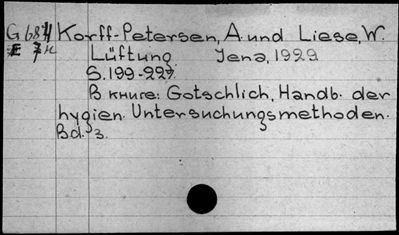 Korff-Petersen, A. und Liese, W.
Lüftung. Jena, 1929
S. 199-227.
В книге: Gotschlich, Handb. der
hygien. Untersuchungsmethoden.
Bd. 3.